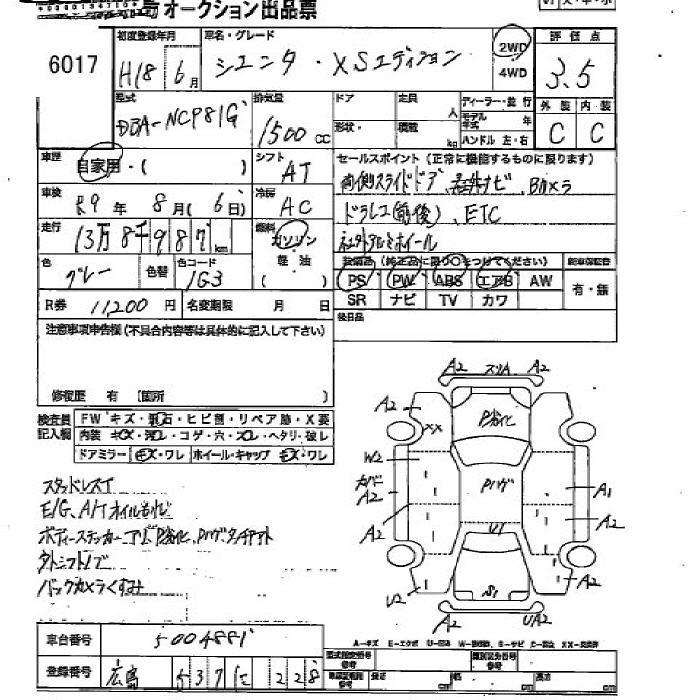 オークション出品票
6017
初度登録年月
H18年6月
車名・グレード
シエンタ・XSエディション
2WD
4WD
評価点
3.5
外装 内装
C C
型式
DBA-NCP81G
排気量
1500cc
ドア
形状・
定員 人
積載 kg
ディーラー・並行
モデル年式 年
ハンドル 左・右
車歴
自家用・( )
シフト
AT
セールスポイント(正常に機能するものに限ります)
両側スライドドア、社外ナビ、Bカメラ
ドラレコ(前後)、ETC
社外アルミホイール
車検
R9年8月(6日)
冷房
AC
走行
13万8千987km
燃料
ガソリン
軽油
( )
色
グレー
色替
色コード
1G3
装備品(純正品に限り○をつけてください)
PS PW ABS エアB AW
SR ナビ TV カワ
新車保証書
有・無
R券 11200円
名変期限 月 日
後日品
注意事項申告欄(不具合内容等は具体的に記入して下さい)
修復歴 有 [箇所 ]
検査員記入欄
FW キズ・飛石・ヒビ割・リペア跡・X要
内装 キズ・汚レ・コゲ・穴・スレ・ヘタリ・破レ
ドアミラー キズ・ワレ ホイール・キャップ キズ・ワレ
スタッドレスT
E/G、A/Tオイルもれ
ボディーステッカー
バックカメラくすみ
A2 スリA A2
A2 XX
P劣化
W2
Pハゲ
カバー
A2
A2
A1
A2
U1
S1
U2
A2
A2 UA2
A-キズ E-エクボ
車台番号
5004881
登録番号
広島 537 に 228
型式指定番号
参考
類別区分番号
参考
長さ cm
幅 cm
高さ cm